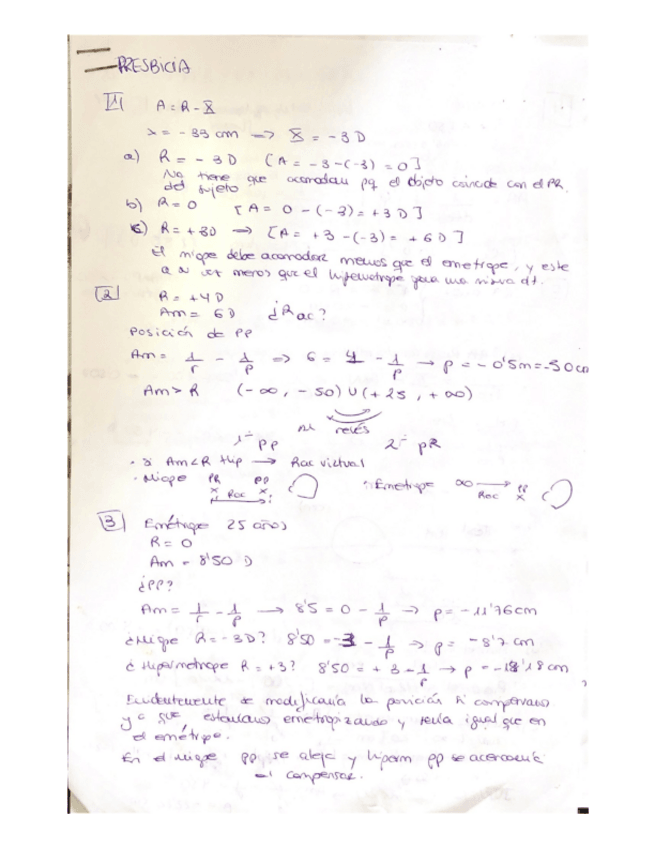 PRESBICIA
1 A = R - X̄
x = - 33 cm => X̄ = - 3 D
a) R = - 3D [A = -3 -(-3) = 0]
No tiene que acomodar pq el objeto coincide con el PR
del sujeto
b) R = 0 [A = 0 - (-3) = +3 D]
c) R = +3D => [A = +3 -(-3) = +6 D]
El miope debe acomodar menos que el emetrope, y este
a su vez menos que el hipermetrope para una misma dt.
2 R = +4D
Am = 6D ¿Rac?
Posición de PP
Am = 1/r - 1/p => 6 = 4 - 1/p → p = - 0'5m = -50 cm
Am > R (-∞, -50) U (+25, +∞)
al revés
1º PP 2º PR
· si Am<R Hip → Rac virtual
· Miope PR PP Rac · Emetrope ∞ → PP Rac
3 Emétrope 25 años
R = 0
Am = 8'50 D
¿PP?
Am = 1/r - 1/p → 8'5 = 0 - 1/p → p = -11'76cm
¿Miope R = -3D? 8'50 = -3 - 1/p → p = -8'7 cm
¿Hipermetrope R = +3? 8'50 = +3 - 1/p → p = -18'18cm
Evidentemente se modificaría la posición si compensamos
ya que estaríamos emetropizando y sería igual que en
el emétrope.
En el miope pp se aleja y hiperm pp se acercaría
al compensar.